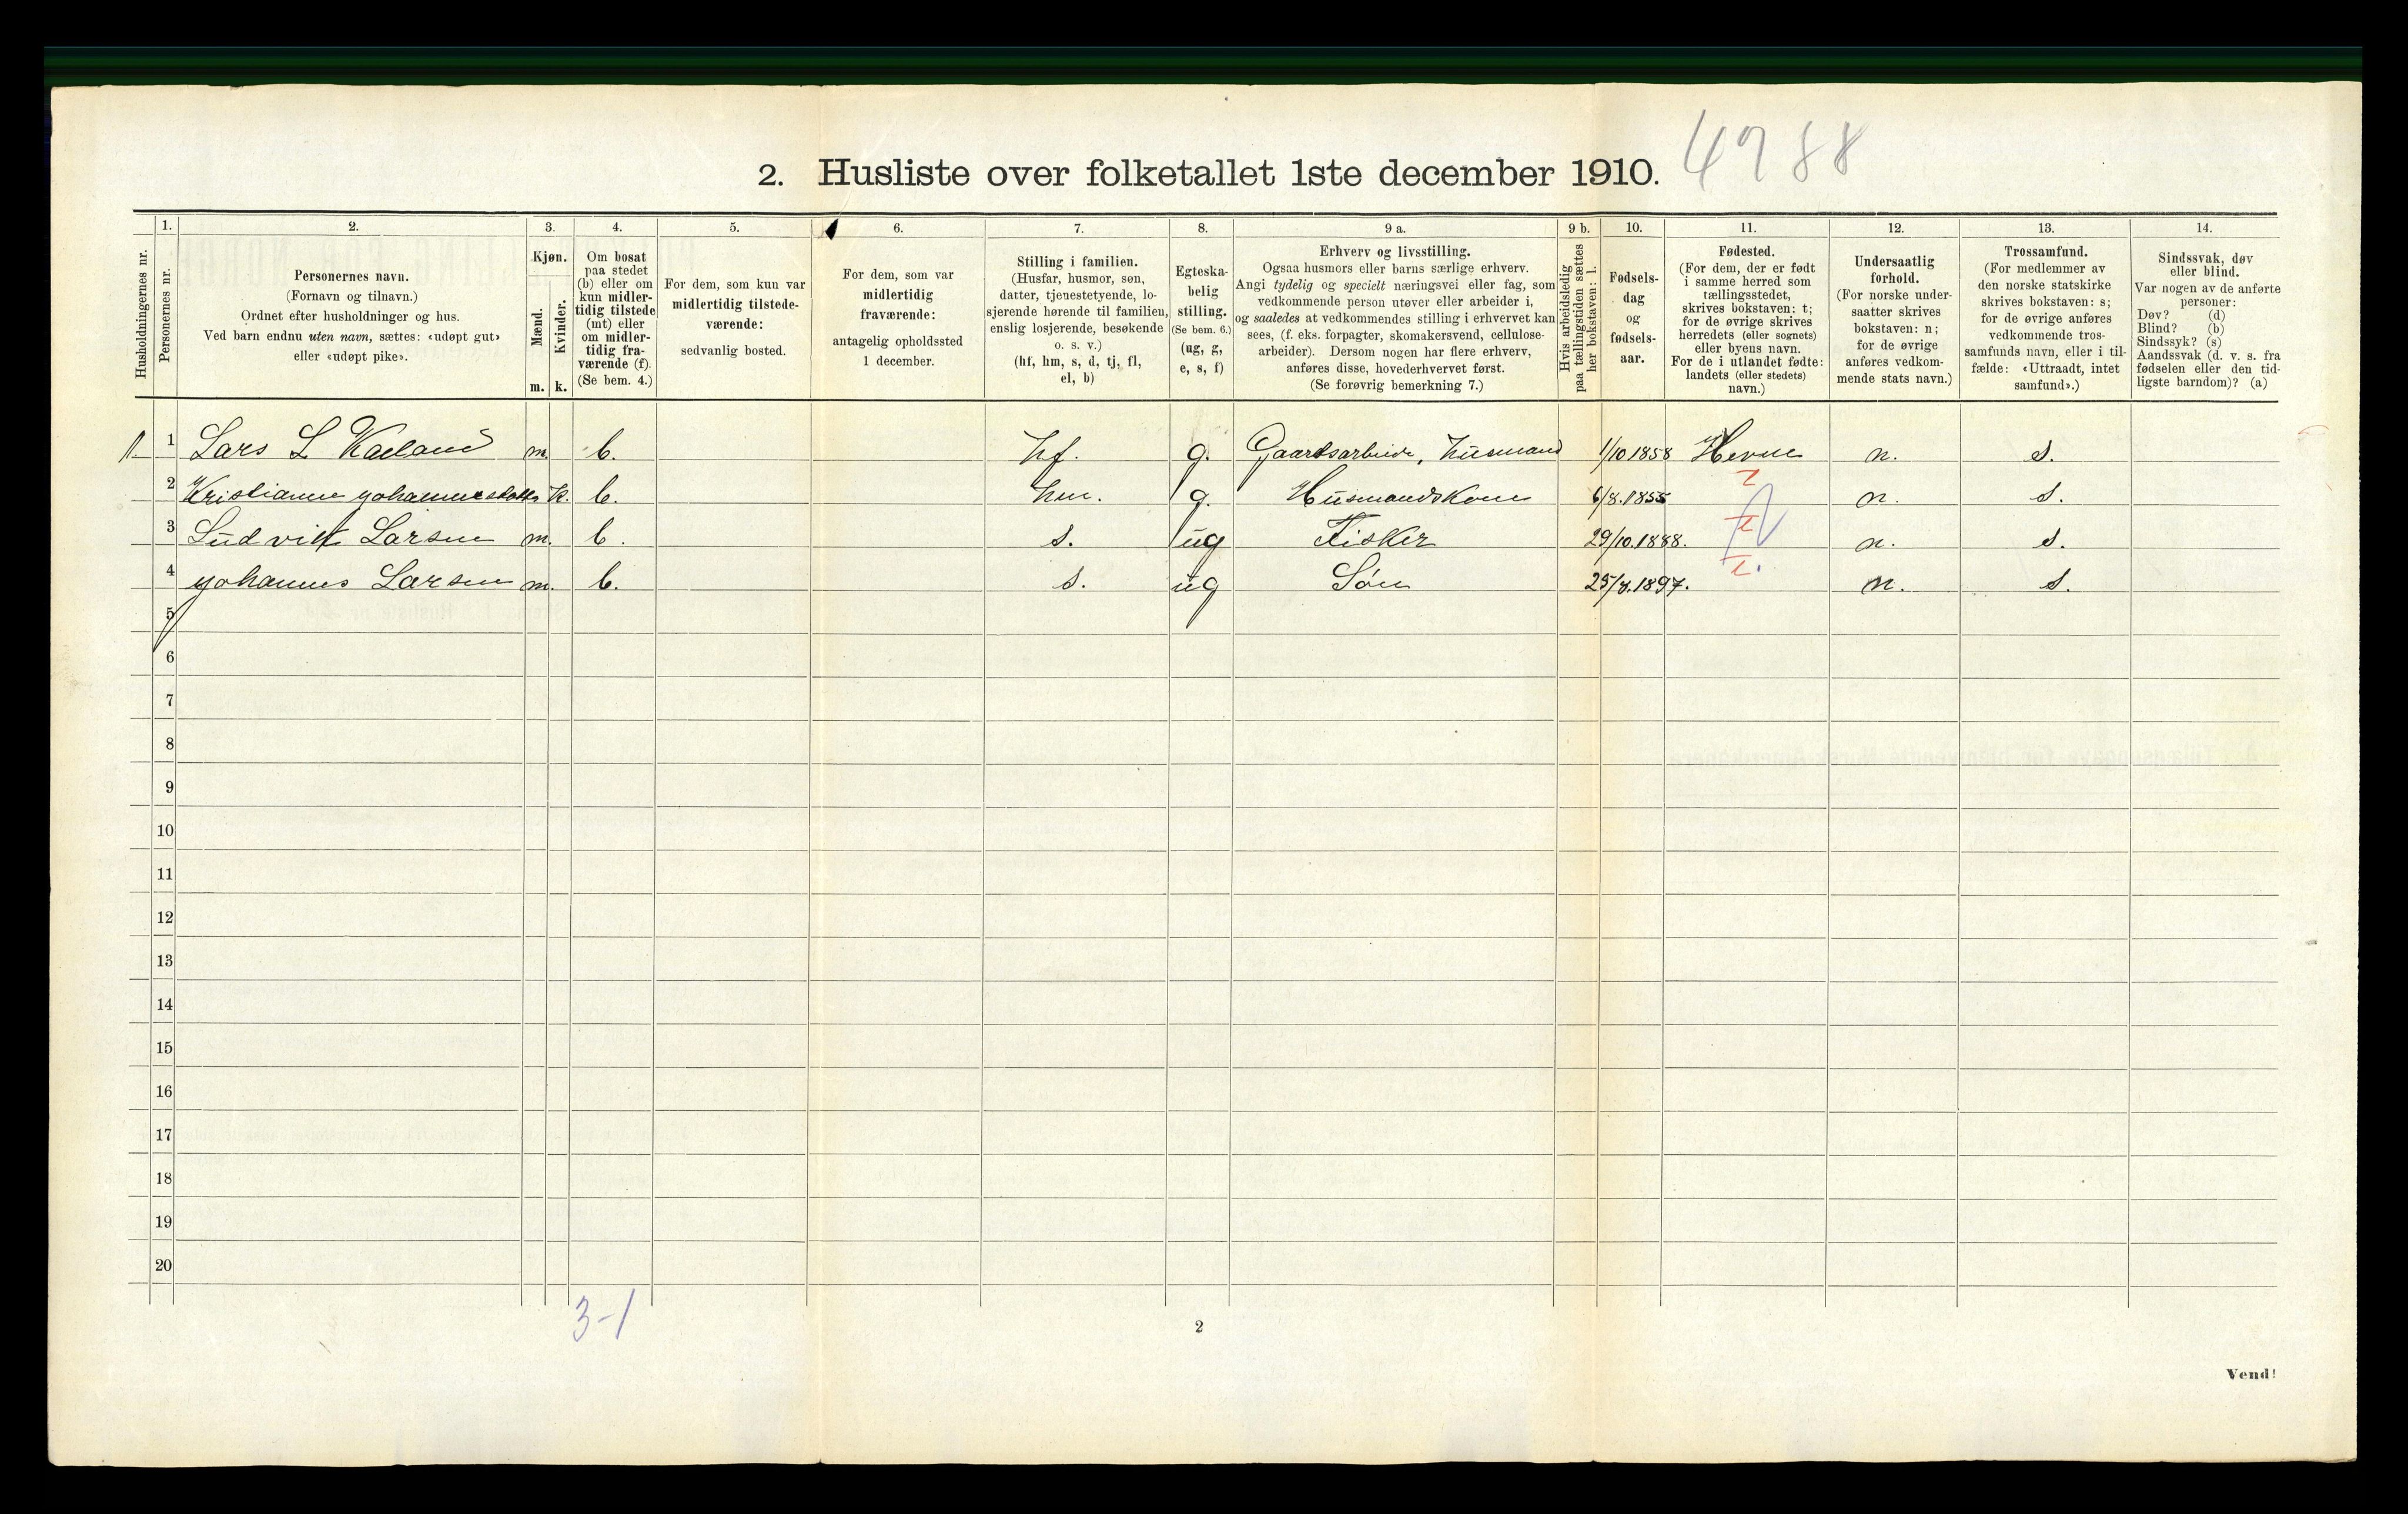 2. Husliste over folketallet 1ste december 1910. 4988
Husholdningernes nr.
1.
Personernes nr.
2.
Personernes navn.
(Fornavn og tilnavn.)
Ordnet efter husholdninger og hus.
Ved barn endnu uten navn, sættes: «udøpt gut»
eller «udøpt pike».
3.
Kjøn.
Mænd.
Kvinder.
m. k.
4.
Om bosat
paa stedet
(b) eller om
kun midler-
tidig tilstede
(mt) eller
om midler-
tidig fra-
værende (f).
(Se bem. 4.)
5.
For dem, som kun var
midlertidig tilstede-
værende:
sedvanlig bosted.
6.
For dem, som var
midlertidig
fraværende:
antagelig opholdssted
1 december.
7.
Stilling i familien.
(Husfar, husmor, søn,
datter, tjenestetyende, lo-
sjerende hørende til familien,
enslig losjerende, besøkende
o. s. v.)
(hf, hm, s, d, tj, fl,
el, b)
8.
Egteska-
belig
stilling.
(Se bem. 6.)
(ug, g,
e, s, f)
9 a.
Erhverv og livsstilling.
Ogsaa husmors eller barns særlige erhverv.
Angi tydelig og specielt næringsvei eller fag, som
vedkommende person utøver eller arbeider i,
og saaledes at vedkommendes stilling i erhvervet kan
sees, (f. eks. forpagter, skomakersvend, cellulose-
arbeider). Dersom nogen har flere erhverv,
anføres disse, hovederhvervet først.
(Se forøvrig bemerkning 7.)
9 b.
Hvis arbeidsledig
paa tællingstiden sættes
her bokstaven: l.
10.
Fødsels-
dag
og
fødsels-
aar.
11.
Fødested.
(For dem, der er født
i samme herred som
tællingsstedet,
skrives bokstaven: t;
for de øvrige skrives
herredets (eller sognets)
eller byens navn.
For de i utlandet fødte:
landets (eller stedets)
navn.)
12.
Undersaatlig
forhold.
(For norske under-
saatter skrives
bokstaven: n;
for de øvrige
anføres vedkom-
mende stats navn.)
13.
Trossamfund.
(For medlemmer av
den norske statskirke
skrives bokstaven: s;
for de øvrige anføres
vedkommende tros-
samfunds navn, eller i til-
fælde: «Uttraadt, intet
samfund».)
14.
Sindssvak, døv
eller blind.
Var nogen av de anførte
personer:
Døv? (d)
Blind? (b)
Sindssyk? (s)
Aandssvak (d. v. s. fra
fødselen eller den tid-
ligste barndom)? (a)
1 Lars L m. b. hf. g. Gaardsarbeide, husmand 1/10 1858 Hevne n. s.
2 Kristianne k. b. hm. g. Husmandskone 6/8.1855 n. s.
3 Ludvik Larsen m. b. s. ug Fisker 29/10.1888. t n. s.
4 Johannes Larsen m. b. s. ug Søn t. n. s.
5
6
7
8
9
10
11
12
13
14
15
16
17
18
19
20
3-1
2
Vend!